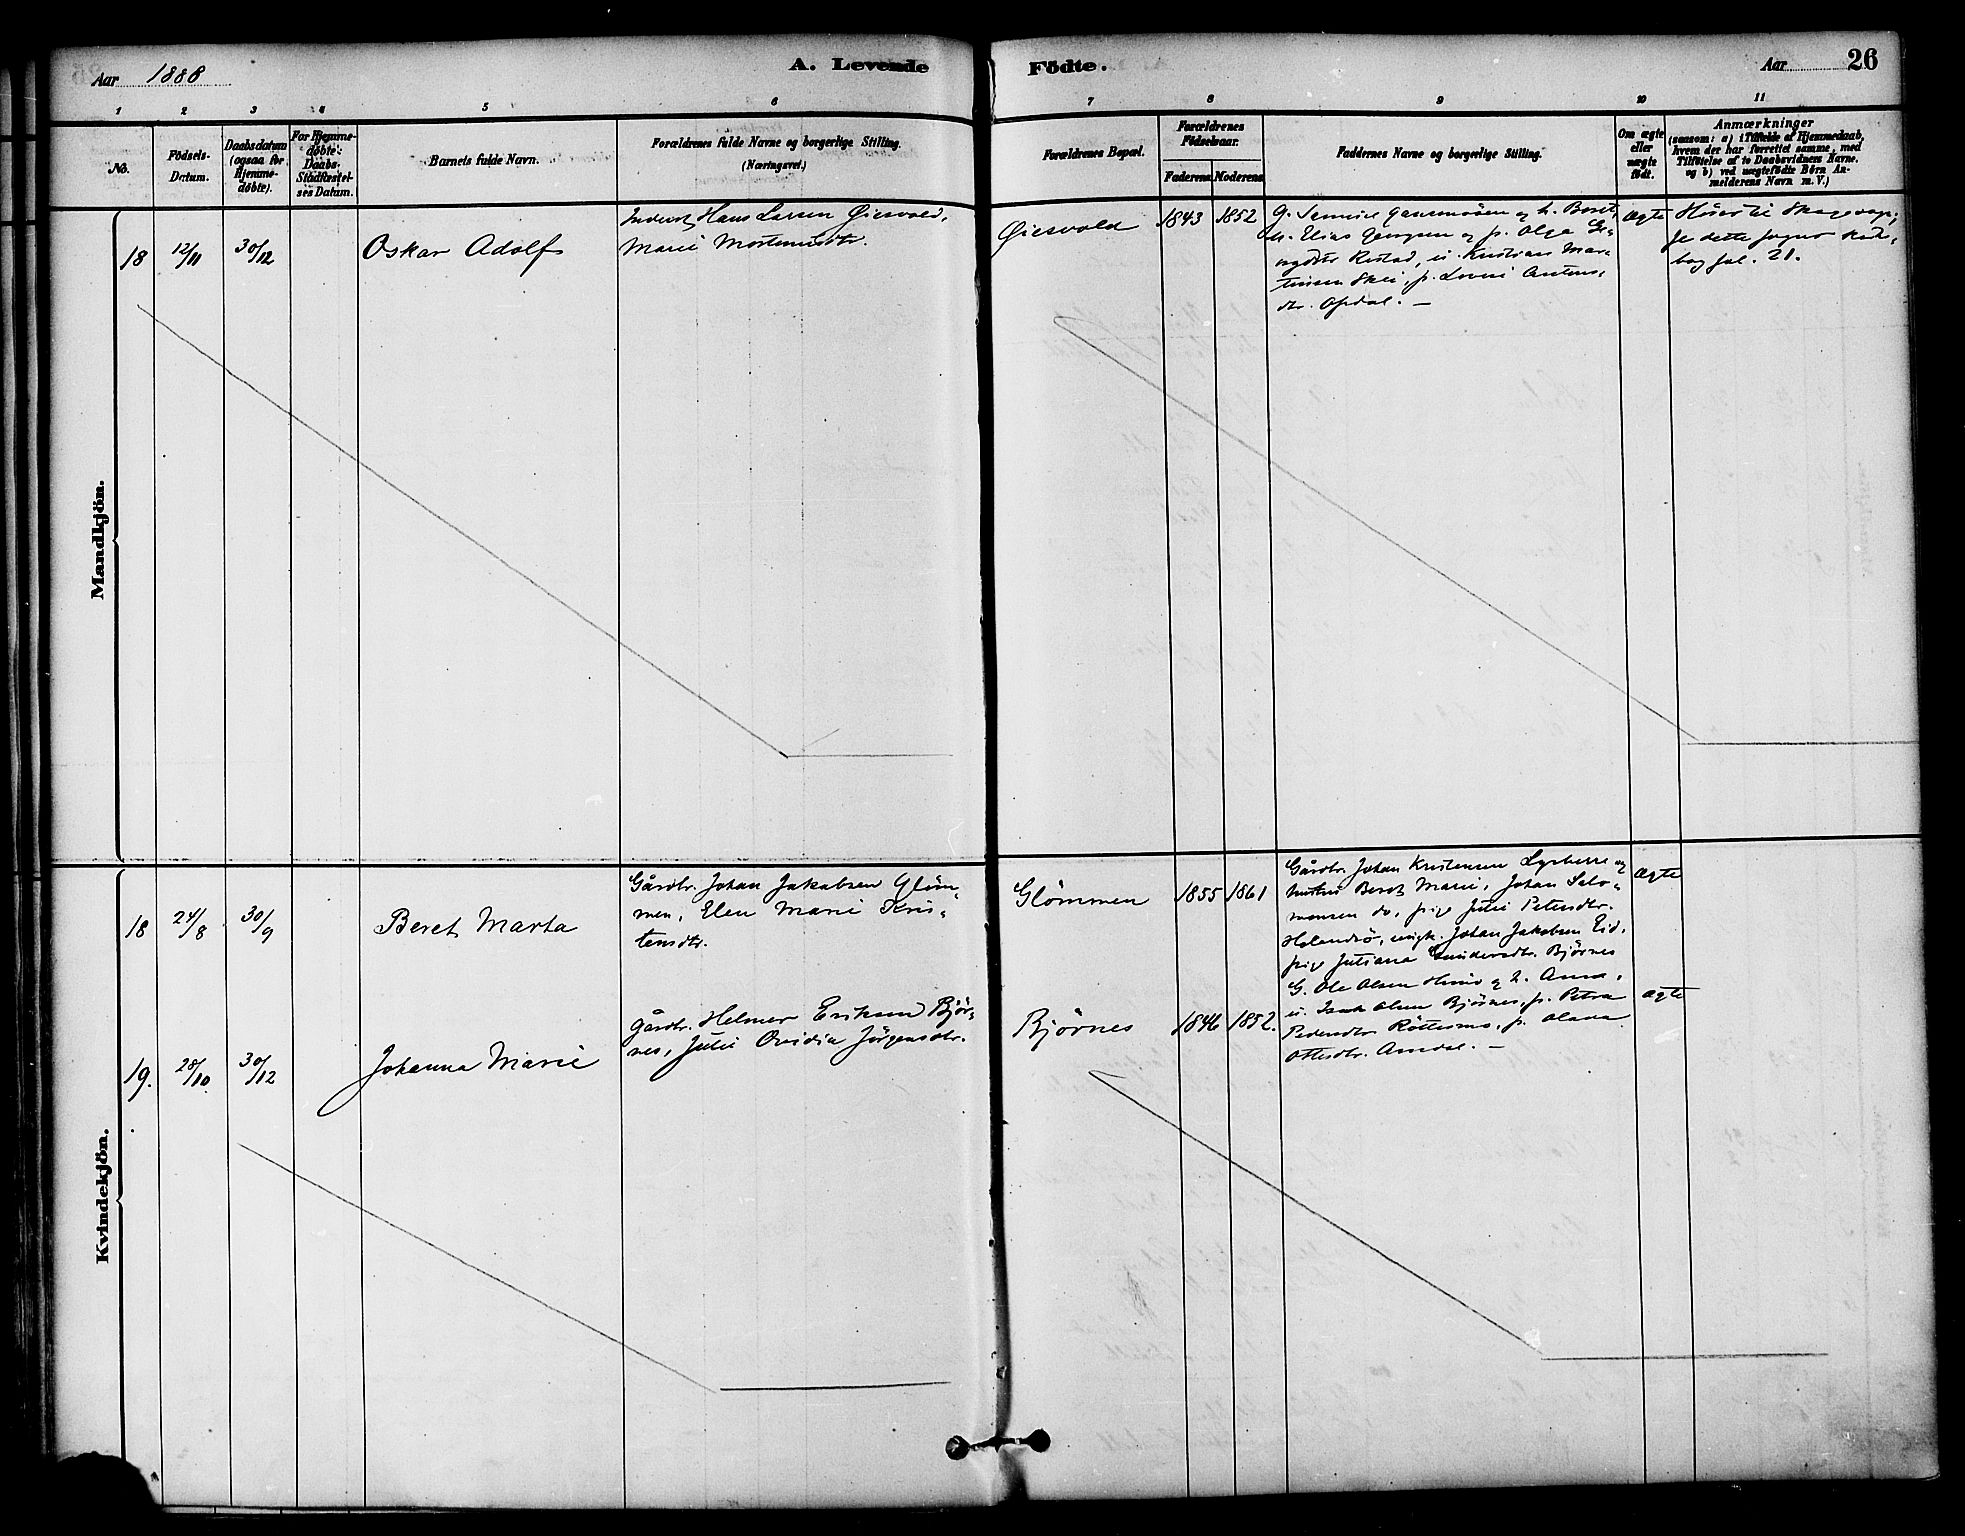 Aar 1888
A. Levende
Födte.
Aar
26
1
2
3
4
5
6
7
8
9
10
11
No.
Födsels-
Datum.
Daabsdatum
(ogsaa for
Hjemme-
døbte).
For Hjemme-
døbte:
Daabs-
Stadfæstel-
ses Datum.
Barnets fulde Navn.
Forældrenes fulde Navne og borgerlige Stilling.
(Næringsvei.)
Forældrenes Bopæl.
Forældrenes
Födselsaar.
Faderens
Moderens
Faddernes Navne og borgerlige Stilling.
Om ægte
eller
uægte
født.
Anmærkninger
(saasom: a) i Tilfælde af Hjemmedaab,
hvem der har forrettet samme, med
Tilføielse af to Daabsvidners Navne.
og b) ved uægtefödte Börn An-
melderens Navn m. V.)
Mandkjön.
18
12/11
30/12
Oskar Adolf
Inderst Hans Larsen Øiesvold,
Marie Mortensdtr.
Øiesvold
1843
1852
og h. Beret,
Elias og p. Olga
Restad, u. Kristian Mar-
tinsen Skei, p. Lovise Antons-
dtr. Opdal. —
Ægte
Hører til Skage sogn,
se dette sogns kirke-
bog fol. 21.
Kvindekjön.
18
24/8
30/9
Beret Marta
Gårdbr. Johan Jakobsen Glöm-
men, Elen Marie Kris-
tensdtr.
Glömmen
1855
1861
Gårdbr. Johan Kristensen og
hustru Beret Marie, Johan Salo-
monsen do, pige Julie Petersdtr.
ungk. Johan Jakobsen Eid,
pige Juliana Gundersdtr. Bjørnes
Ægte
19.
28/10
30/12
Johanna Marie
Gårdbr. Helmer Eriksen Bjør-
nes, Julie Ovidia Jørgensdtr.
Bjørnes
1846
1852.
G. Ole Olsen og h. Anna,
u. Isak Olsen Bjørnes, p. Petra
Pedersdtr. p. Olava
Ottesdtr. Amdal. —
Ægte